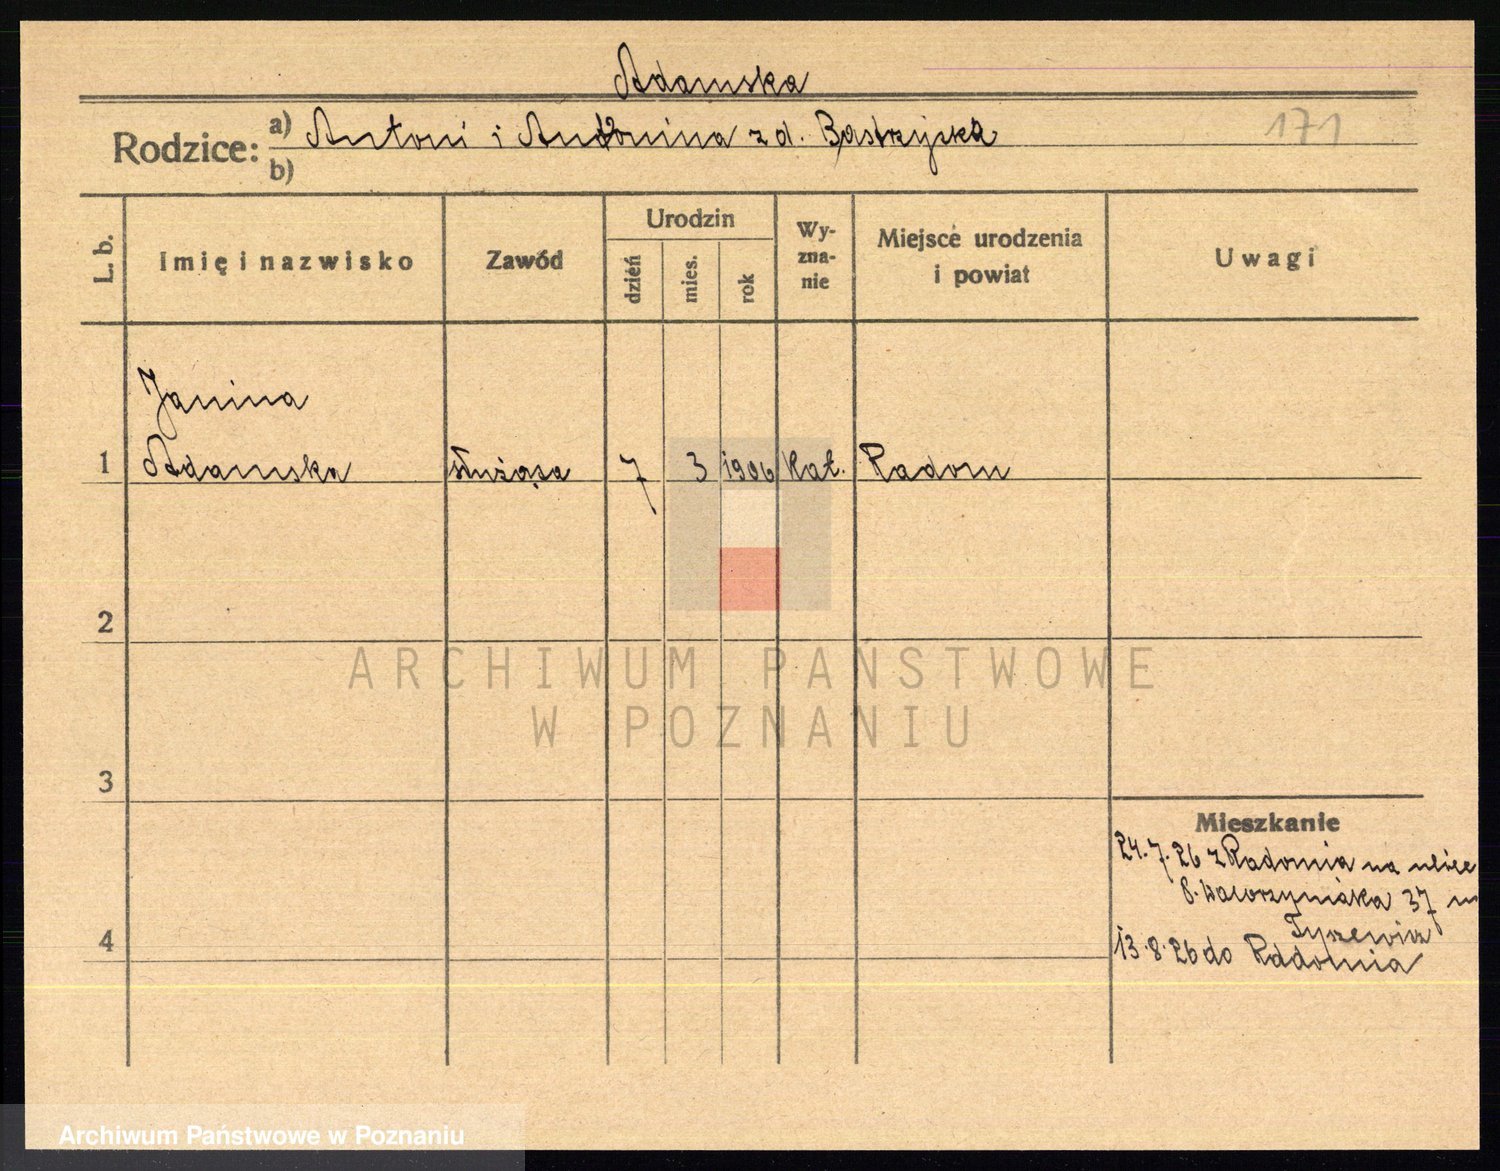 Adamska
Rodzice: a) Antoni i Antonina z d. Bastrzyska
171
b)
L. b.
Imię i nazwisko
Zawód
Urodzin
dzień
mies.
rok
Wy-
zna-
nie
Miejsce urodzenia
i powiat
Uwagi
Janina
1 Adamska służąca 7 3 1906 Kat. Radom
2
ARCHIWUM PAŃSTWOWE
W POZNANIU
3
Mieszkanie
24.7.26 z Radomia na ulice
37 m
4
13.8.26 do Radomia
Archiwum Państwowe w Poznaniu